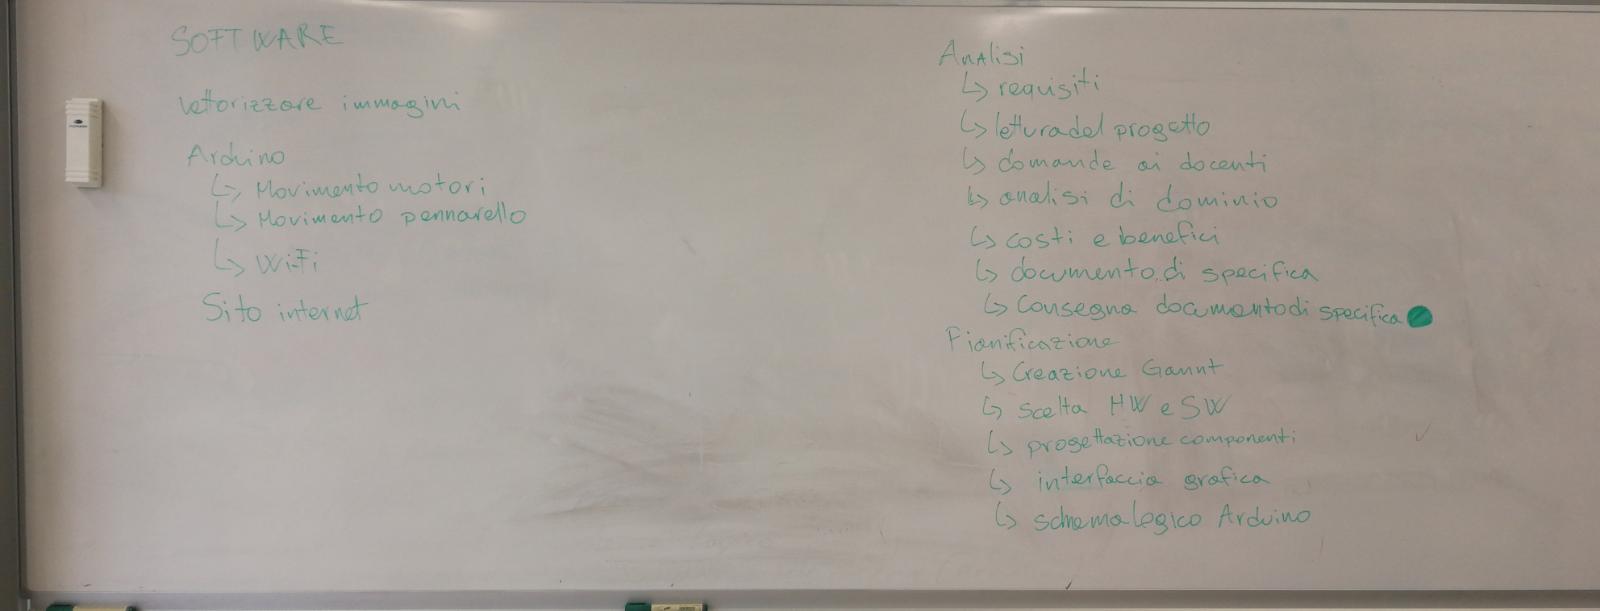 SOFTWARE
Vettorizzare immagini
Arduino
↳ Movimento motori
↳ Movimento pennarello
↳ WiFi
Sito internet
Analisi
↳ requisiti
↳ lettura del progetto
↳ domande ai docenti
↳ analisi di dominio
↳ costi e benefici
↳ documento di specifica
↳ Consegna documento di specifica
Pianificazione
↳ Creazione Gannt
↳ scelta HW e SW
↳ progettazione componenti
↳ interfaccia grafica
↳ schema logico Arduino